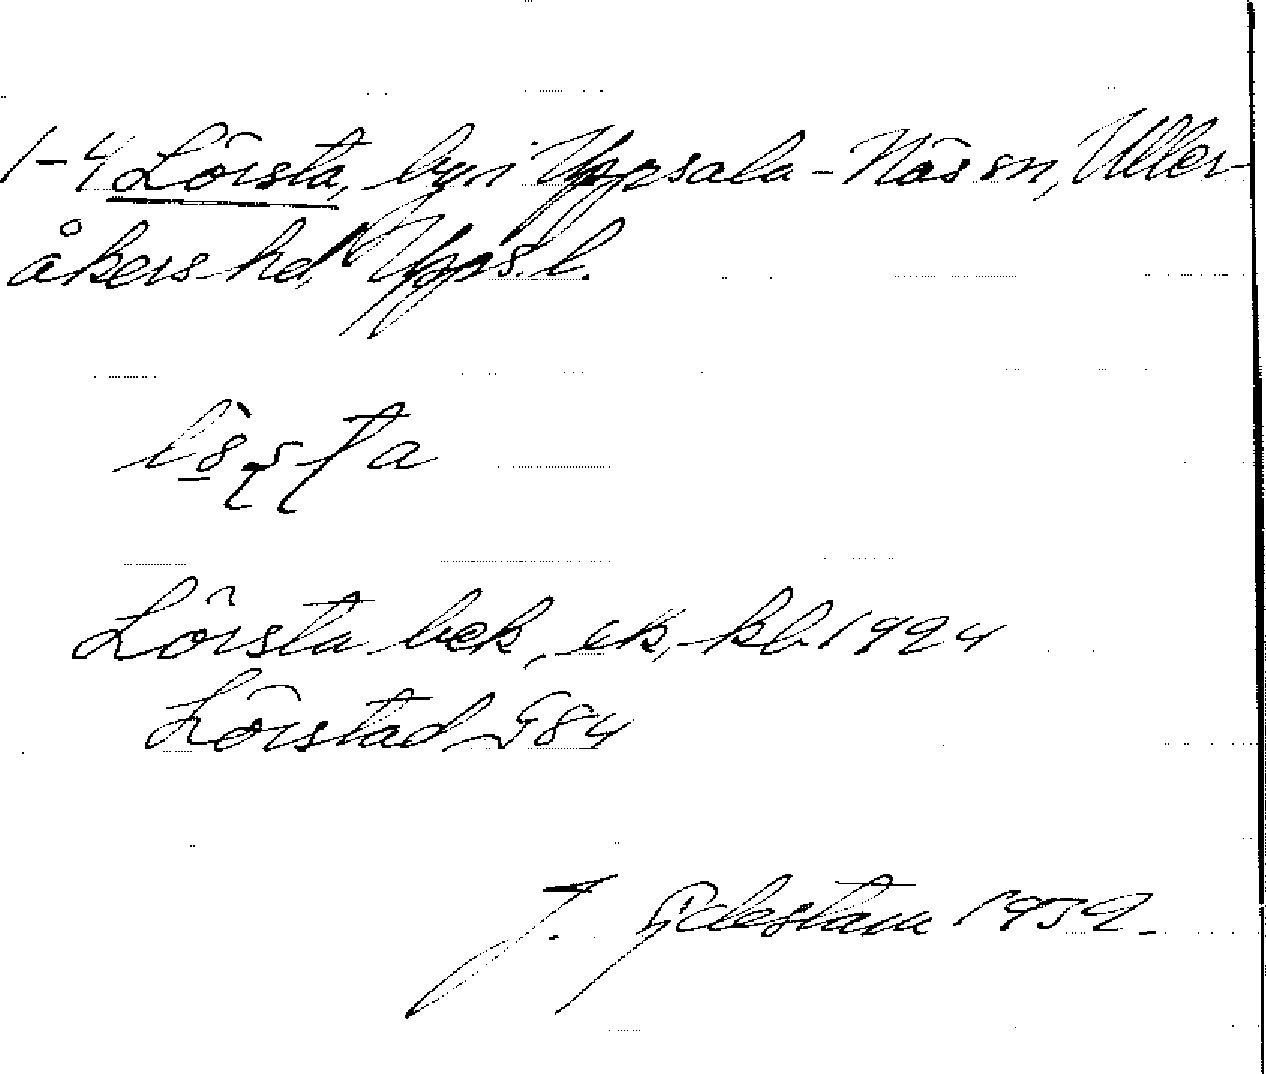 1-4 Lörsta, byn i Uppsala-Näs sn, Uller-
åkers hd, Upps. l.
Lörsta bek, ek, kb. 1924
Lörstad G84
J. 1932.